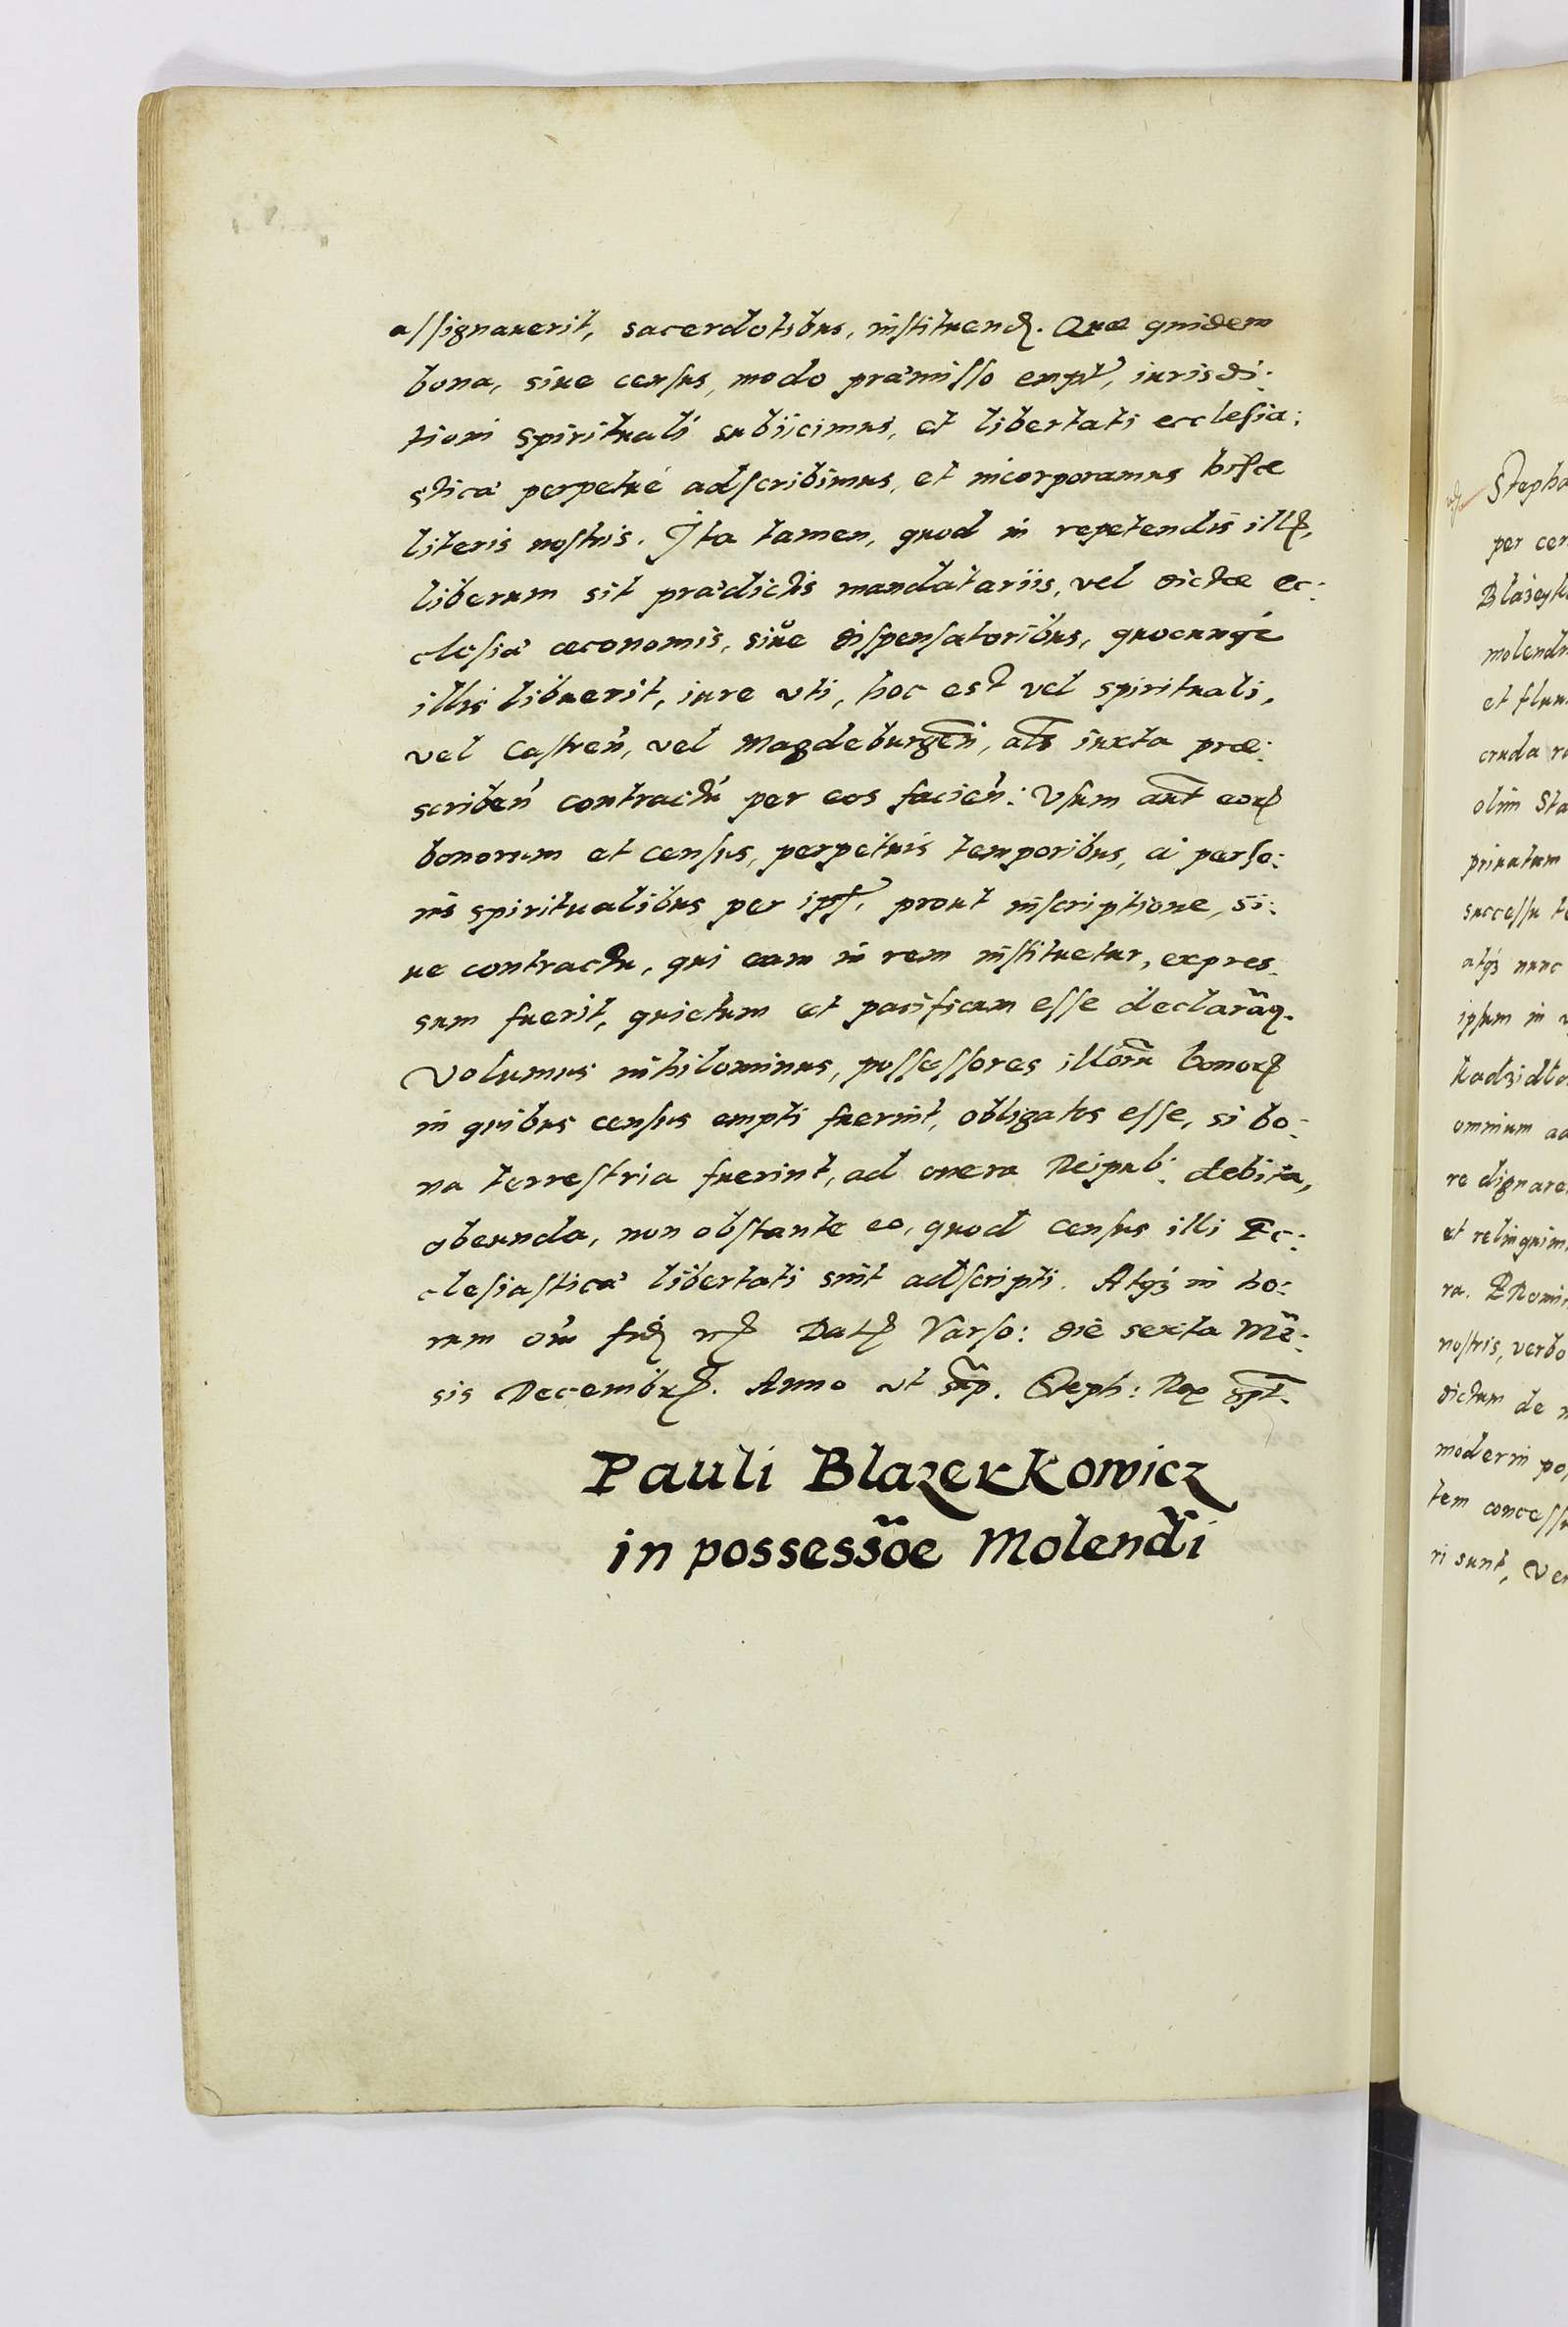 aſſignauerit, sacerdotibus, inſtituend. Quæ quidem
bona, siue cenſus, modo præmiſſo empt, iurisdi:
tioni spirituali subiicimus, et libertati eccleſia:
sticæ perpetué adſcribimus, et incorporamus hiſce
literis noſtris. Ita tamen, quod in repetendis ill,
liberum sit prædictis mandatariis, vel dictæ ec:
cleſiæ œconomis, siue diſpenſatoribus, quocunqé
illis libuerit, iure vti, hoc est vel spirituali,
vel Caſtreñ, vel Magdeburgeñ, als iuxta præ:
scribeñ contractú per eos facieñ: Vſum aũt eoꝝ
bonorum et cenſus, perpetuis temporibus, á perſo:
nis spiritualibus per ipſ, prout inſcriptione, si:
ue contractu, qui eam in rem inſtituetur, expres
sum fuerit, quietum et pacificum eſſe declaram̃q.
Volumus nihilominus, poſſeſſores illorũ bonoꝝ
in quibus cenſus empti fuerint, obligatos eſſe, si bo:
na terreſtria fuerint, ad onera Reipub: debita,
obeunda, non obſtante eo, quod cenſus illi Ec:
cleſiaſticæ libertati sint adſcripti. Atqꝫ in ho:
rum om̃ fid nr Dat Varſo: die sexta Mẽ:
sis Decembr. Anno vt sup̃. Steph: Rex sp̃t.
Pauli Blazeӱkowicz
in possessõe Molendĩ
Stepha
per cer
Blazeyk
molendi
et flum
cruda ro
olim Sta
priuatum
succeſſu te
atqꝫ nunc
ipſum in v
Radzidlo
omnium ad
re dignare
et relinquim
ra. PRomi
noſtris, verbo
dictum de m
moderni poſ
tem conceſſ
ri sunt, Ver